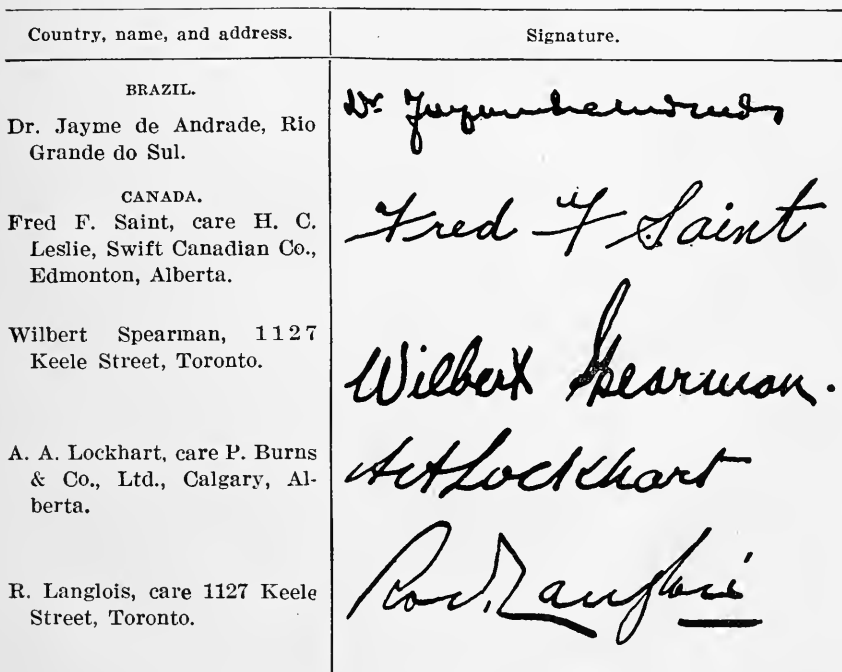 Country, name, and address.
Signature.
BRAZIL.
Dr. Jayme de Andrade, Rio
Grande do Sul.
Dr.
CANADA.
Fred F. Saint, care H. C.
Leslie, Swift Canadian Co.,
Edmonton, Alberta.
Fred F Saint
Wilbert Spearman, 1127
Keele Street, Toronto.
Wilbert Spearman.
A. A. Lockhart, care P. Burns
& Co., Ltd., Calgary, Al-
berta.
A A Lockhart
R. Langlois, care 1127 Keele
Street, Toronto.
Langlois